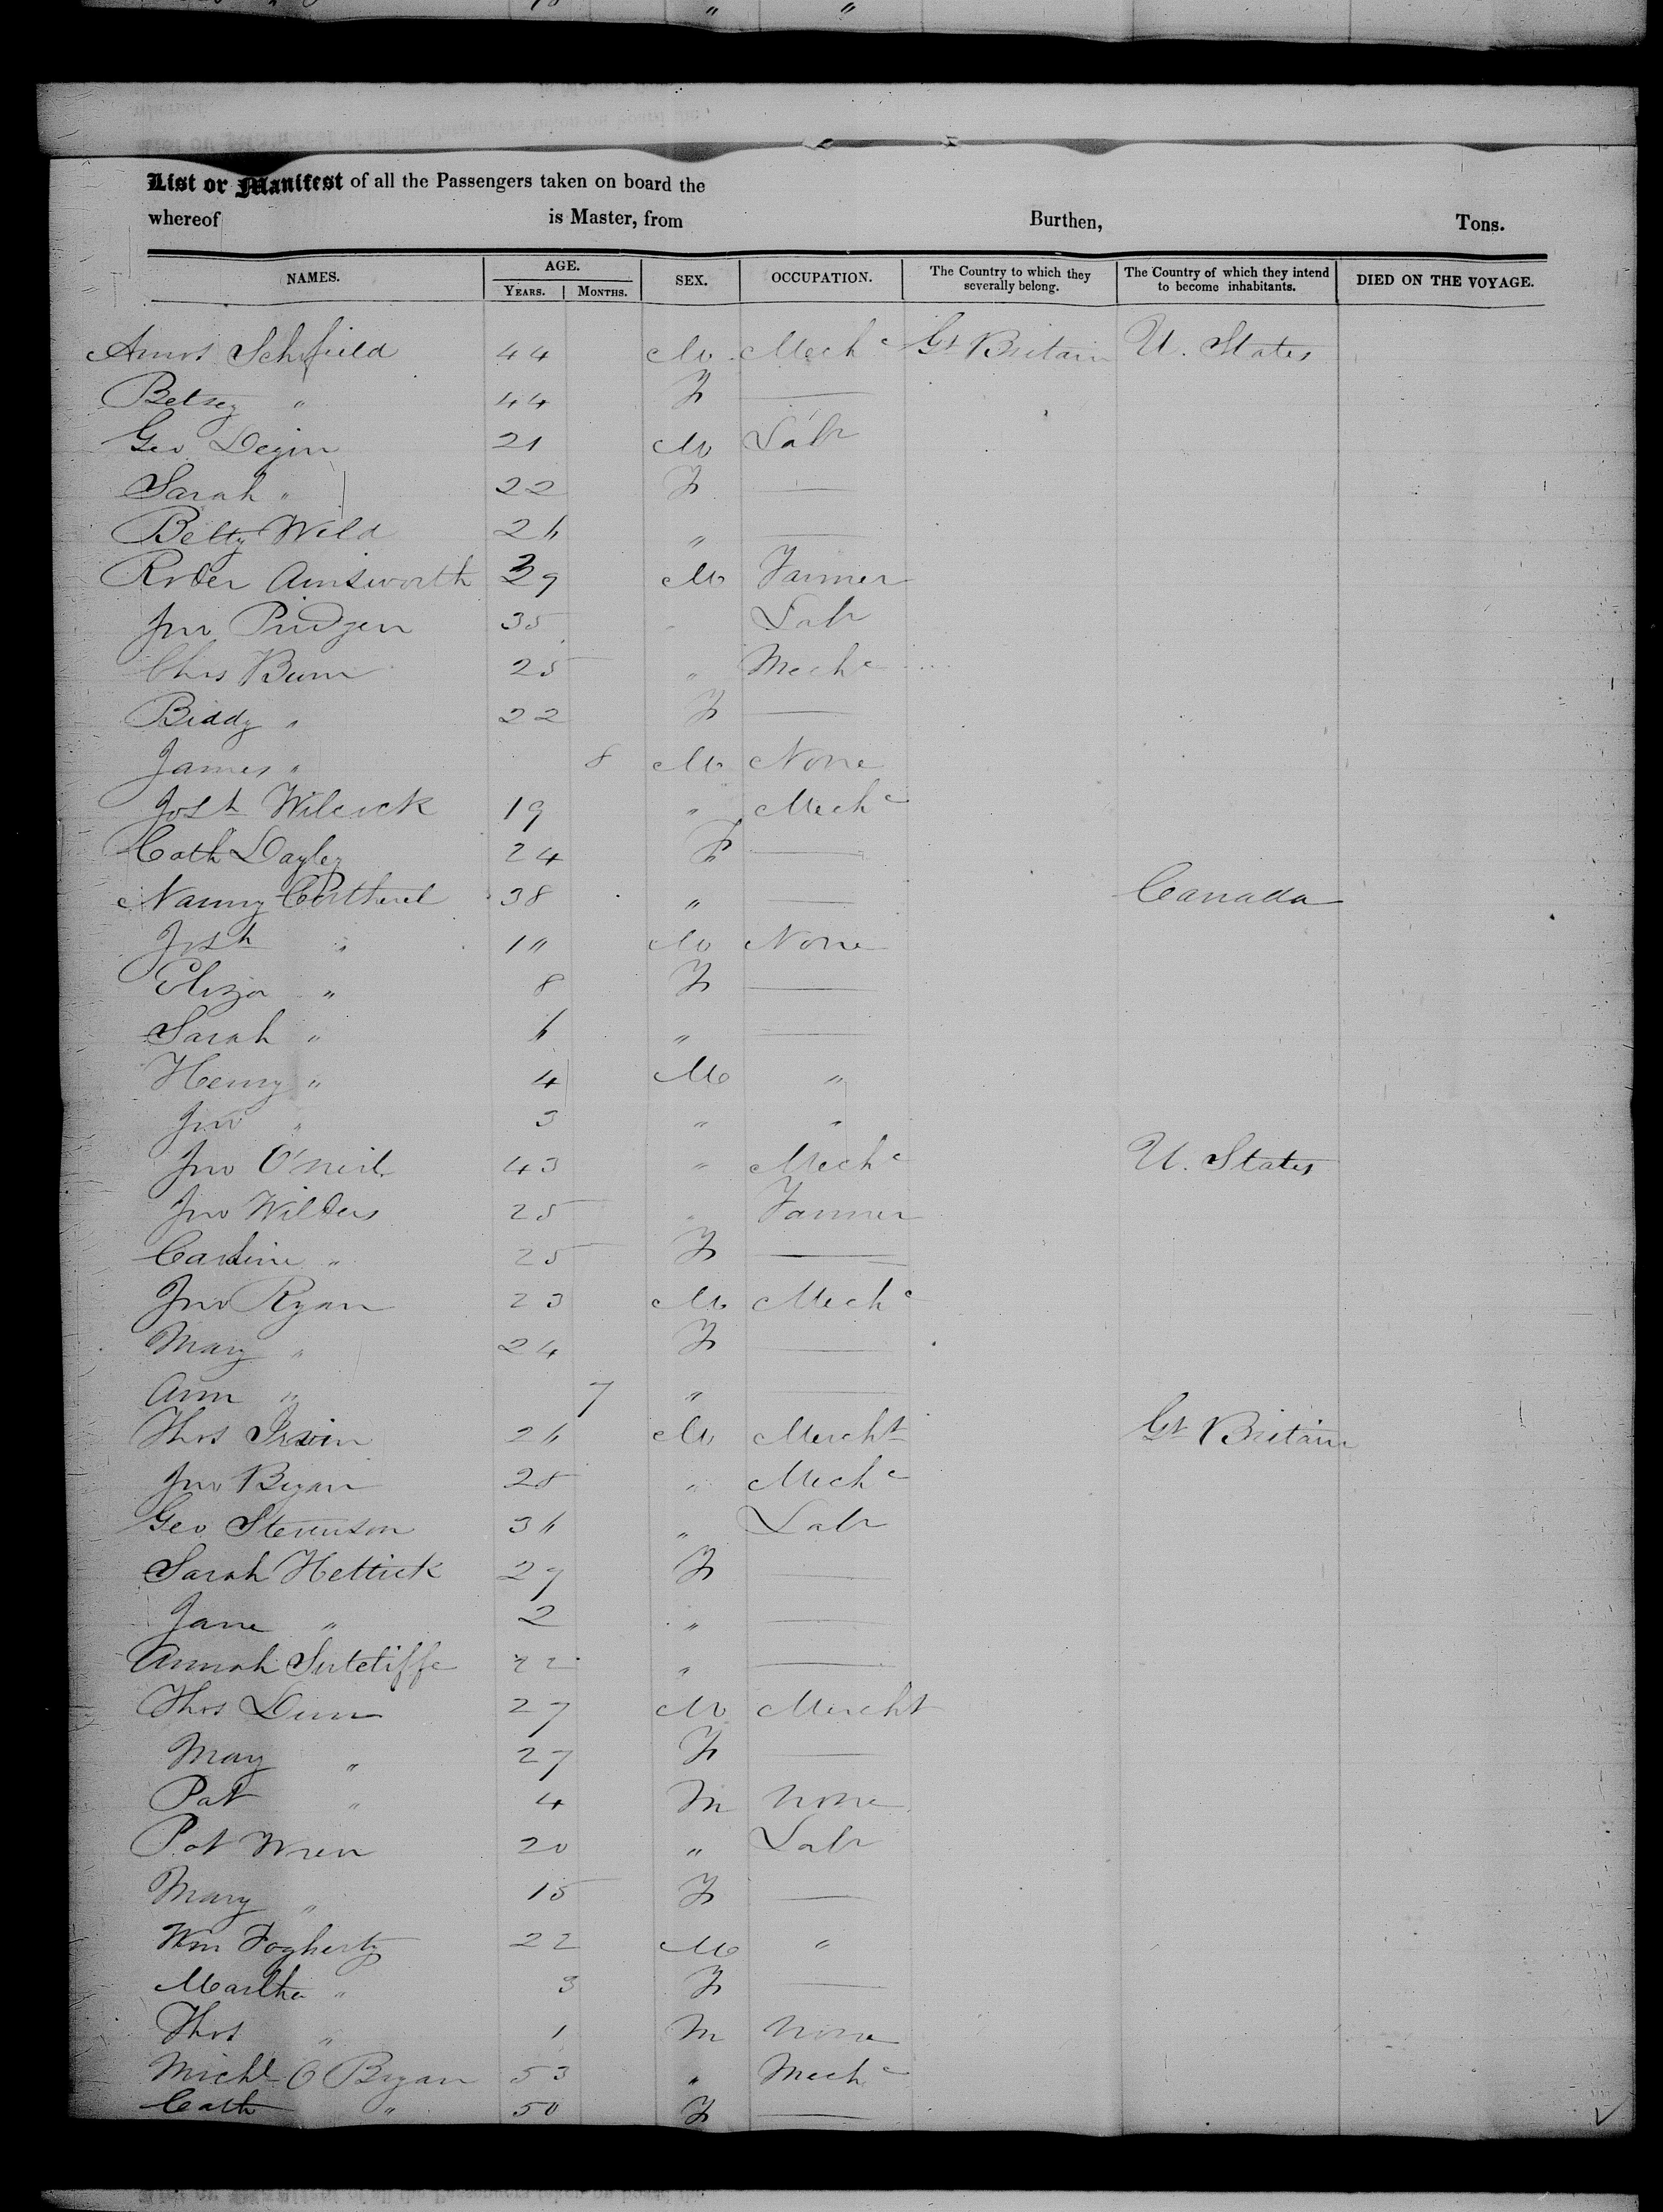 List or Manifest of all the Passengers taken on board the
whereof is Master, from Burthen, Tons.
NAMES. AGE. SEX. OCCUPATION. The Country to which they severally belong. The Country of which they intend to become inhabitants. DIED ON THE VOYAGE.
YEARS. MONTHS.
Amos Schofield 44 M Mechc Gt Britain U. States
Betsey " 44 F —
Geo Degin 21 M Labr
Sarah " 22 F —
Betty Wild 26 " —
Roder Ainsworth 39 M Farmer
Jno Pridgen 35 " Labr
Chas Bunn 25 " Mechc
Biddy " 22 F —
James " 8 M None
Josh Wilcock 19 " Mechc
Cath Dayley 24 F —
Nanny Cottherel 38 " — Canada
Josh " 10 M None
Eliza " 8 F —
Sarah " 6 " —
Henry " 4 M "
Jno " 3 " "
Jno O'neil 43 " Mechc U. States
Jno Wilders 25 " Farmer
Caroline " 25 F —
Jno Ryan 23 M Mechc
Mary " 24 F —
Ann " 7 " —
Thos Irwin 26 M Mercht Gt Britain
Jno Bryan 28 " Mechc
Geo Stevenson 36 " Labr
Sarah Hettick 29 F —
Jane " 2 " —
Annah Sutcliffe 22 " —
Thos Dunn 27 M Mercht
Mary " 27 F —
Pat " 4 M None
Pat Wren 20 " Labr
Mary " 15 F —
Wm Fogherty 22 M "
Martha " 3 F —
Thos " 1 M None
Michl O Bryan 53 " Mechc
Cath " 50 F —